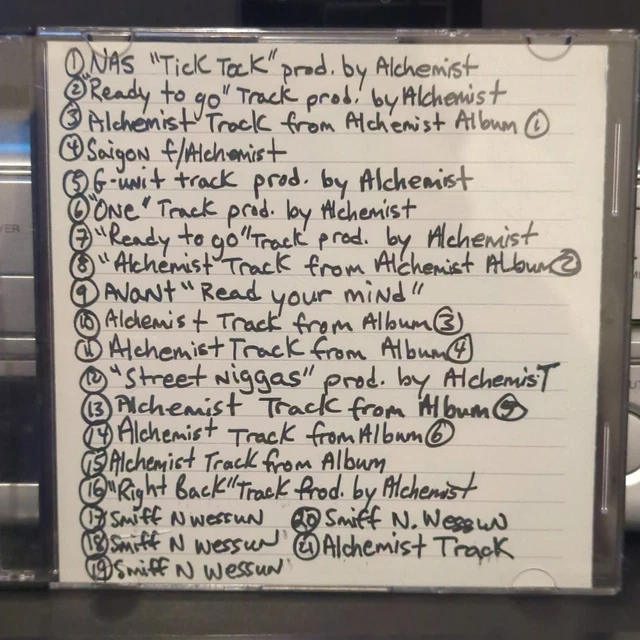 ① NAS "Tick Tock" prod. by Alchemist
② "Ready to go" Track prod. by Alchemist
③ Alchemist Track from Alchemist Album ①
④ Saigon f/Alchemist
⑤ G-unit track prod. by Alchemist
⑥ "ONE" Track prod. by Alchemist
⑦ "Ready to go" Track prod. by Alchemist
⑧ "Alchemist" Track from Alchemist Album ②
⑨ AVANT "Read your mind"
⑩ Alchemist Track from Album ③
⑪ Alchemist Track from Album ④
⑫ "Street Niggas" prod. by Alchemist
⑬ Alchemist Track from Album ⑤
⑭ Alchemist Track from Album ⑥
⑮ Alchemist Track from Album
⑯ "Right Back" Track prod. by Alchemist
⑰ Smiff N Wessun ⑳ Smiff N. Wessun
⑱ Smiff N Wessun ㉑ Alchemist Track
⑲ Smiff N Wessun